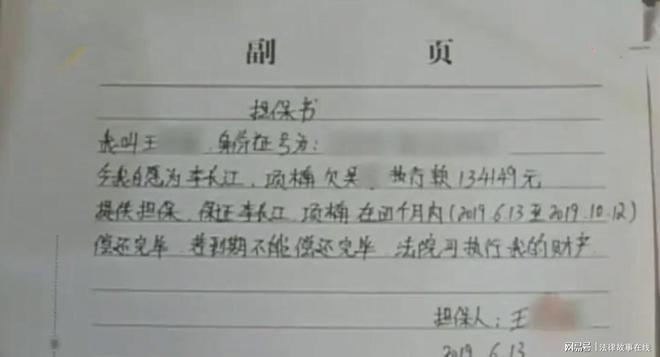 副 页
担保书
我叫王 身份证号为:
今我自愿为李长江、项楠欠吴 执行款134149元
提供担保、保证李长江、项楠在四个月内(2019.6.13至2019.10.12)
偿还完毕 若到期不能偿还完毕 法院可执行我的财产
担保人:王
2019.6.13
网易号 | 法律故事在线